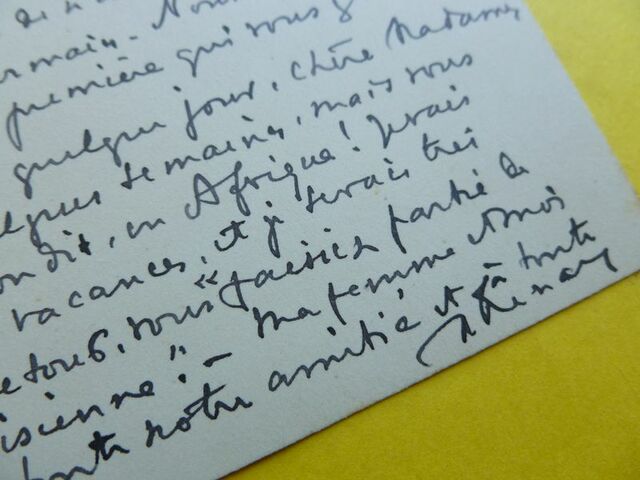 main. Nous
première qui vous
quelque jour, chère Madame,
semaines, mais vous
on dit, en Afrique! Je vais
vacances, et je serais très
vous "faisiez partie de
isienne". - Ma femme et moi
toute notre amitié et à toute